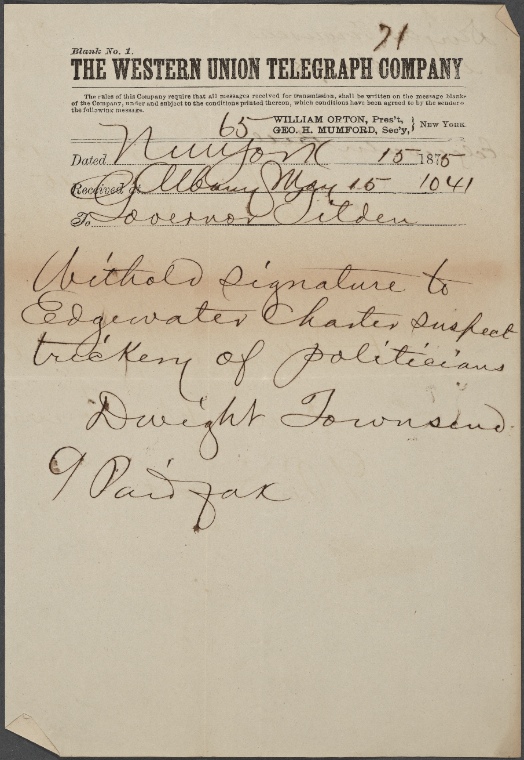 71
Blank No. 1.
THE WESTERN UNION TELEGRAPH COMPANY
The rules of this Company require that all messages received for transmission, shall be written on the message blanks
of the Company, under and subject to the conditions printed thereon, which conditions have been agreed to by the sender of
the following message.
65 WILLIAM ORTON, Pres't,
GEO. H. MUMFORD, Sec'y, } NEW YORK.
Dated New York 15 1875
Received at Albany May 15 1041
To Governor Tilden
Withold signature to
Edgewater Charter suspect
trickery of politicians
Dwight Townsend
9 Paid